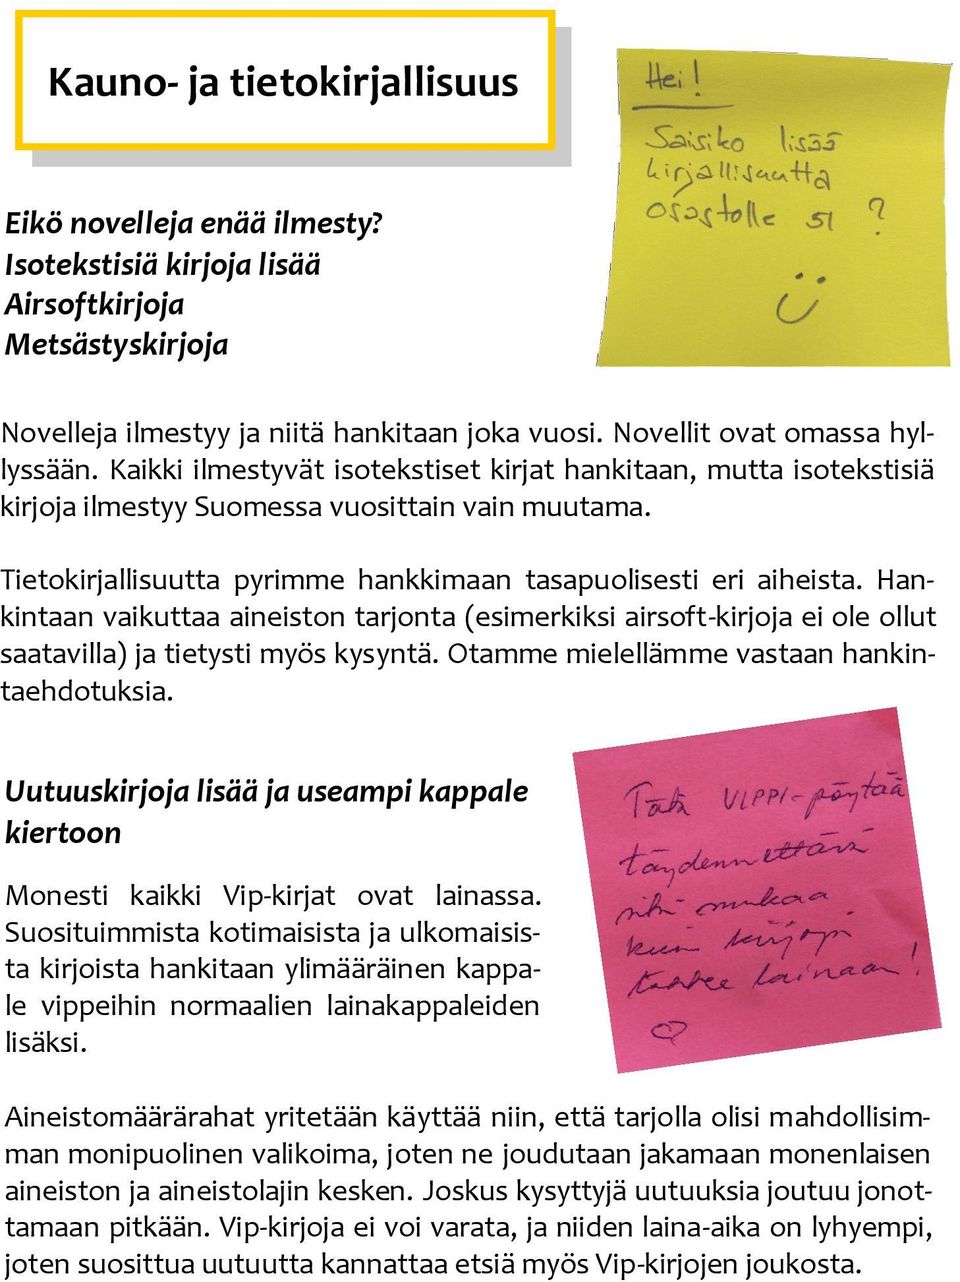 Kauno- ja tietokirjallisuus
Hei!
Saisiko lisää
kirjallisuutta
osastolle 51 ?
Eikö novelleja enää ilmesty?
Isotekstisiä kirjoja lisää
Airsoftkirjoja
Metsästyskirjoja
Novelleja ilmestyy ja niitä hankitaan joka vuosi. Novellit ovat omassa hyl-
lyssään. Kaikki ilmestyvät isotekstiset kirjat hankitaan, mutta isotekstisiä
kirjoja ilmestyy Suomessa vuosittain vain muutama.
Tietokirjallisuutta pyrimme hankkimaan tasapuolisesti eri aiheista. Han-
kintaan vaikuttaa aineiston tarjonta (esimerkiksi airsoft-kirjoja ei ole ollut
saatavilla) ja tietysti myös kysyntä. Otamme mielellämme vastaan hankin-
taehdotuksia.
Uutuuskirjoja lisää ja useampi kappale
kiertoon
Monesti kaikki Vip-kirjat ovat lainassa.
Suosituimmista kotimaisista ja ulkomaisis-
ta kirjoista hankitaan ylimääräinen kappa-
le vippeihin normaalien lainakappaleiden
lisäksi.
Tätä VIPPI-pöytää
täydennettävä
sitä mukaa
kuin kirjoja
lainaan!
Aineistomäärärahat yritetään käyttää niin, että tarjolla olisi mahdollisim-
man monipuolinen valikoima, joten ne joudutaan jakamaan monenlaisen
aineiston ja aineistolajin kesken. Joskus kysyttyjä uutuuksia joutuu jonot-
tamaan pitkään. Vip-kirjoja ei voi varata, ja niiden laina-aika on lyhyempi,
joten suosittua uutuutta kannattaa etsiä myös Vip-kirjojen joukosta.